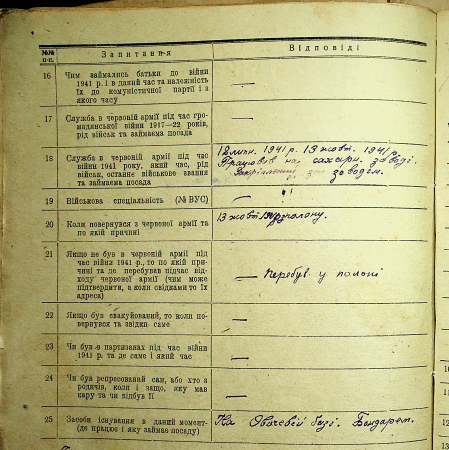 №№ п.п.
Запитання
Відповіді
16
Чим займались батьки до війни
1941 р. і в даний час та належність
їх до комуністичної партії і з
якого часу
—
17
Служба в червоній армії під час гро-
мадянської війни 1917—22 років,
рід військ та займаєма посада
—
18
Служба в червоній армії під час
війни 1941 року, який час, рід
військ, останнє військове звання
та займаєма посада
12 липн. 1941 р. 13 жовт. 1941 р.
Працював на сахарн. заводі.
заводом.
19
Військова спеціальність (№ ВУС)
—
20
Коли повернувся з червоної армії та
по якій причині
13 жовт. полону.
21
Якщо не був в червоній армії під
час війни 1941 р., то по якій при-
чині та де перебував підчас від-
ходу червоної армії (чим може
підтвердити, а коли свідками то їх
адреса)
— перебув. у полоні
22
Якщо був евакуйований, то коли по-
вернувся та звідки саме
—
23
Чи був в партизанах під час війни
1941 р. та де саме і який час
—
24
Чи був репресований сам, або хто з
родичів, коли і защо, яку мав
кару та чи відбув її
—
25
Засоби існування в даний момент-
(де працює і яку займає посаду)
На Овочевій базі. Бондарем.
10
11
12
13